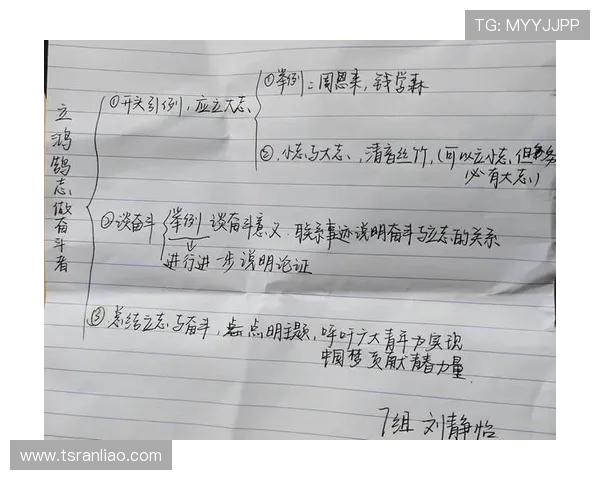 TG: MYYJJPP
立鸿鹄志,做奋斗者
①开头引例,应立大志
①举例:周恩来,钱学森
②.小志与大志,清音丝竹,(可以立小志,但
必有大志)
②谈奋斗
举例 谈奋斗意义.联系事迹说明奋斗与立志的关系
进行进一步说明论证
③总结立志与奋斗,点明主题,呼吁广大青年为实现
中国梦贡献青春力量.
7组 刘静怡
www.tsranliao.com